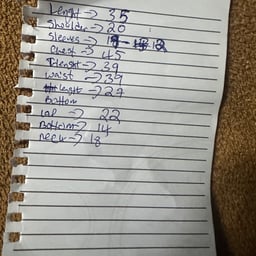 Lenght → 35
Shoulder → 20
Sleeves → 12
Chest → 45
Tlenght → 39
waist → 39
lenght → 27
Bottom
Lap → 22
Bottom → 14
neck → 18